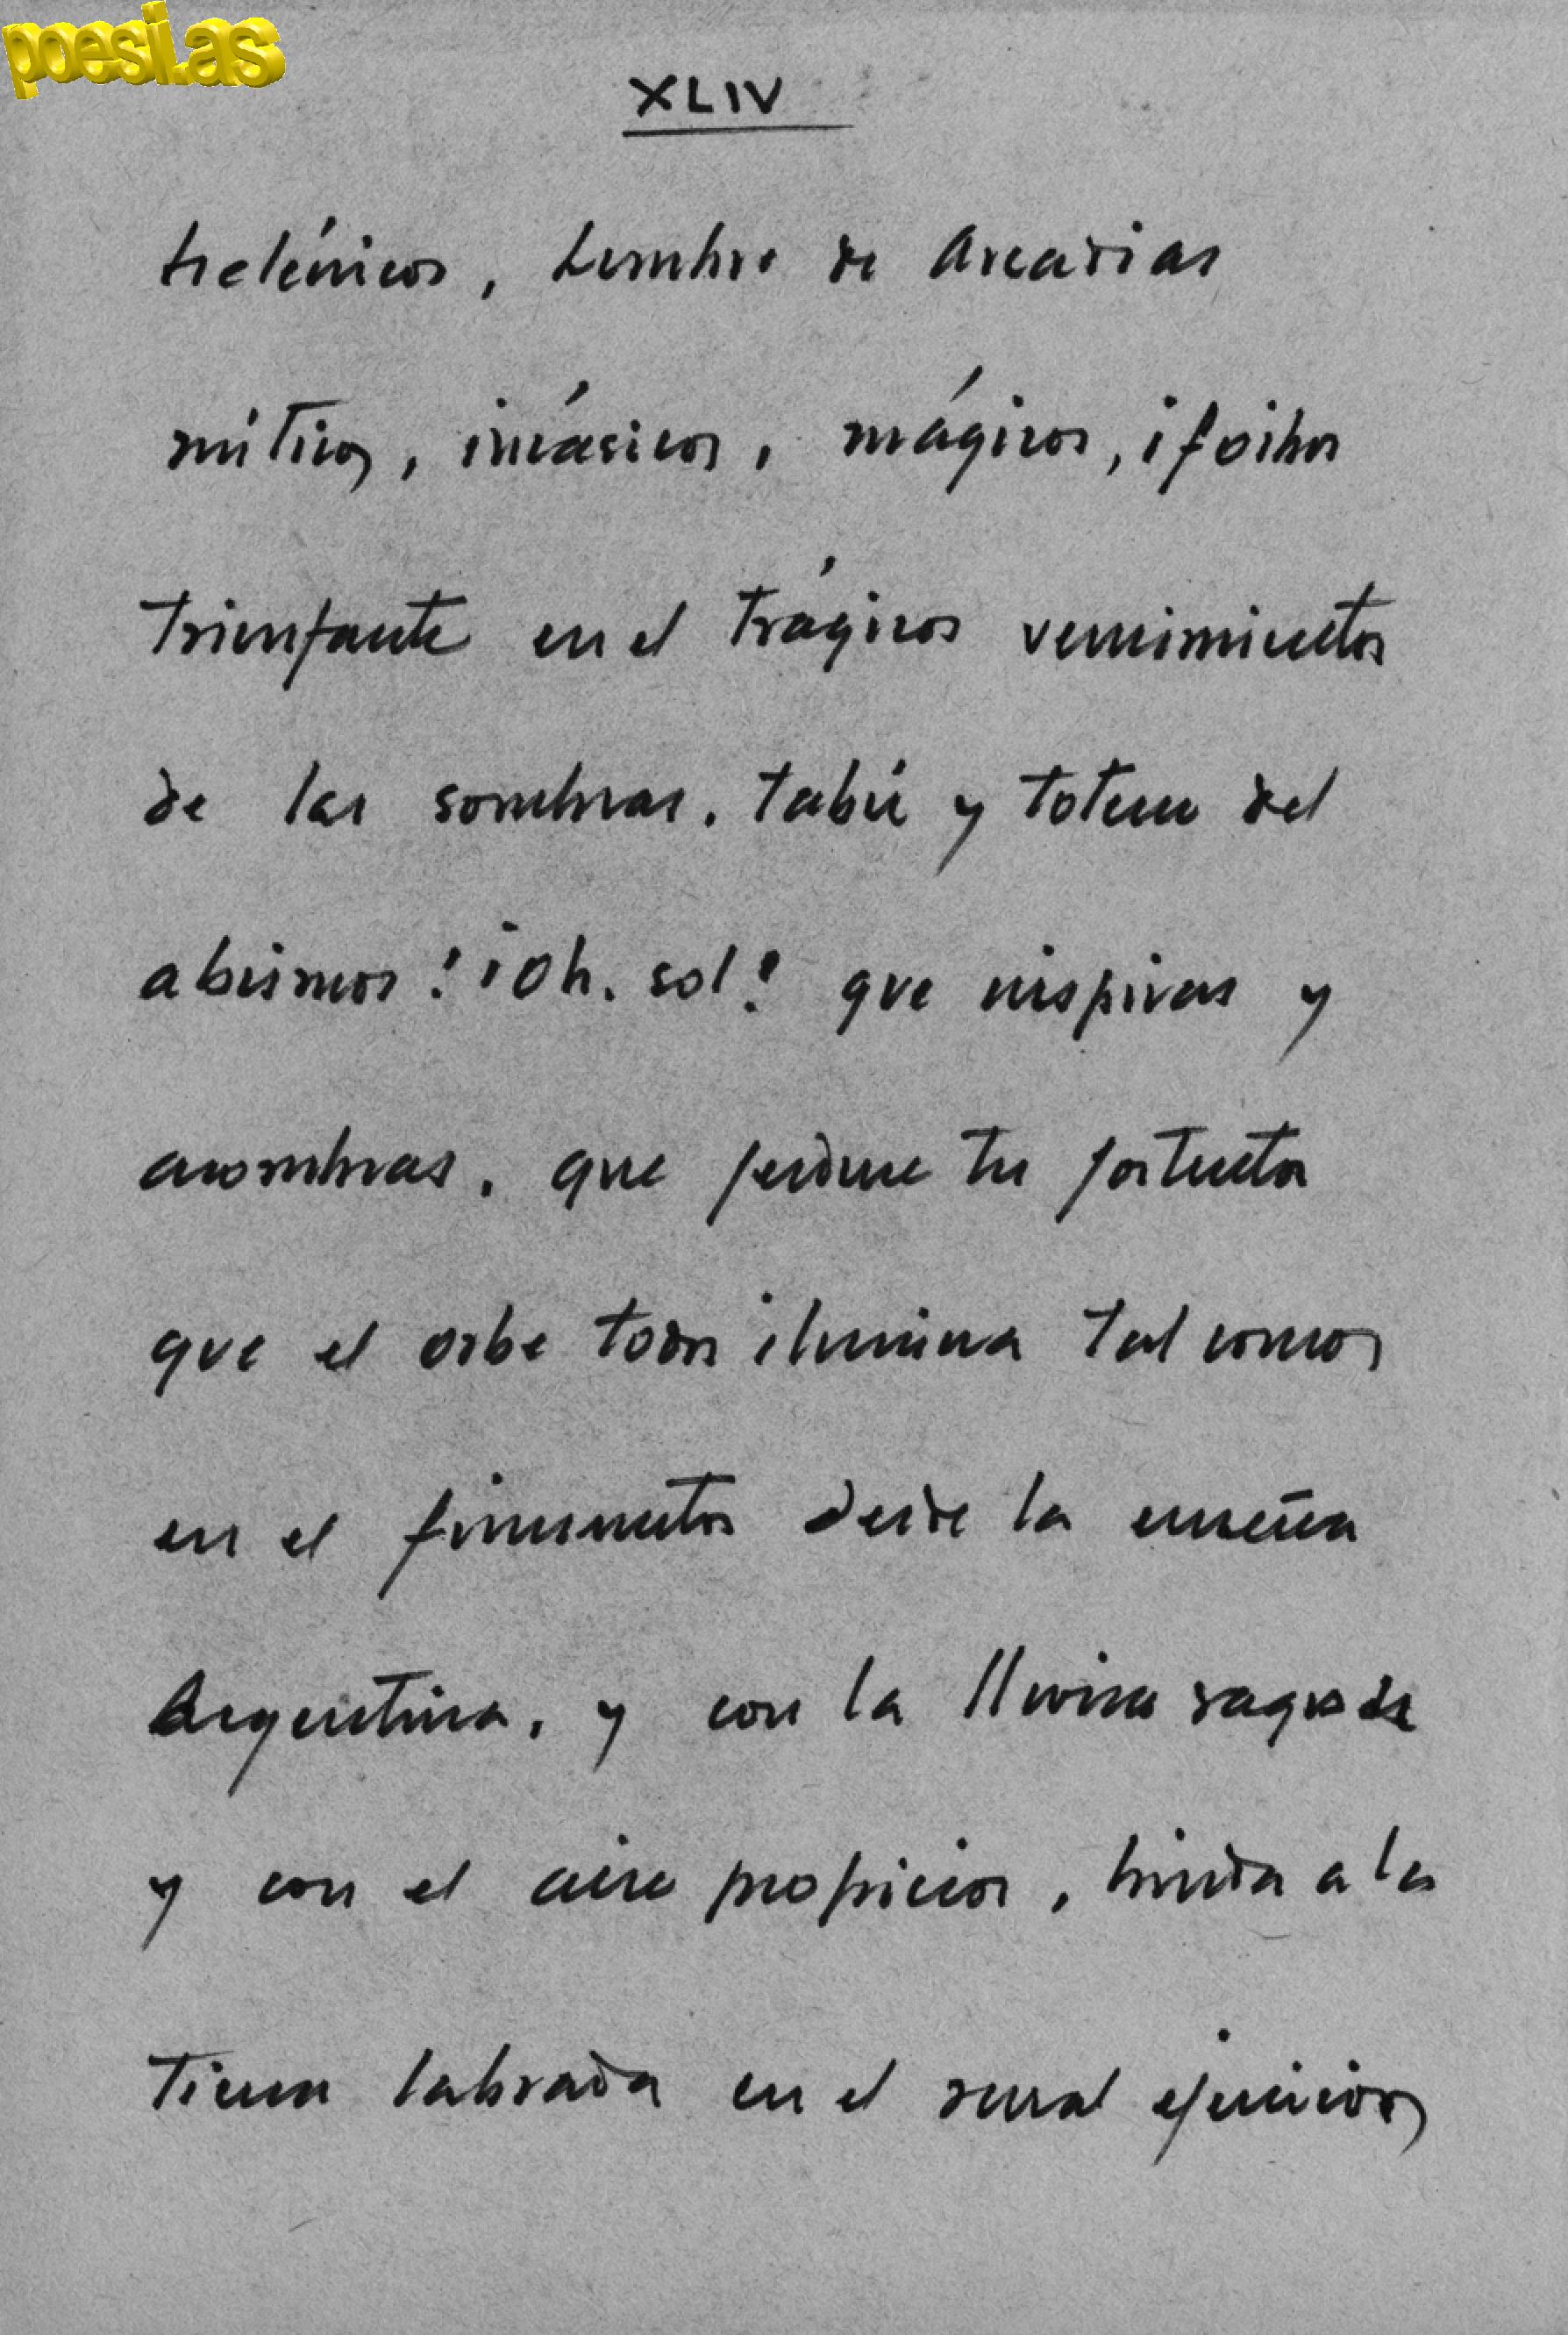 poesi.as
XLIV
helénico, lumbre de Arcadias
mítico, incásico, mágico, ¡foibos
triunfante en el trágico vencimiento
de las sombras, tabú y totem del
abismo! ¡Oh, sol! que inspiras y
asombras, que perdure tu portento
que el orbe todo ilumina tal como
en el firmamento desde la enseña
Argentina, y con la lluvia sagrada
y con el aire propicio, brinda a la
tierra labrada en el rural ejercicio